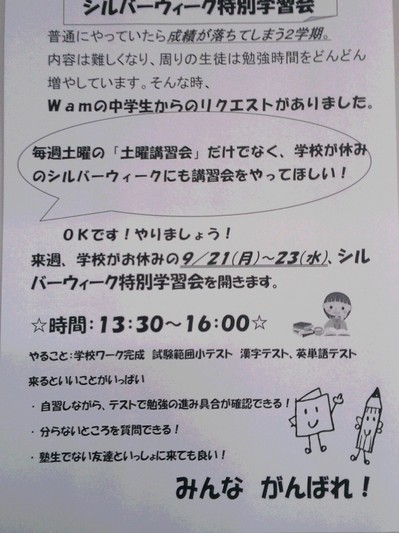 シルバーウィーク特別学習会
普通にやっていたら成績が落ちてしまう2学期。
内容は難しくなり、周りの生徒は勉強時間をどんどん
増やしています。そんな時、
Wamの中学生からのリクエストがありました。
毎週土曜の「土曜講習会」だけでなく、学校が休み
のシルバーウィークにも講習会をやってほしい！
OKです！やりましょう！
来週、学校がお休みの9／21(月)～23(水)、シル
バーウィーク特別学習会を開きます。
☆時間：13:30～16:00☆
やること：学校ワーク完成 試験範囲小テスト 漢字テスト、英単語テスト
来るといいことがいっぱい
・自習しながら、テストで勉強の進み具合が確認できる！
・分らないところを質問できる！
・塾生でない友達といっしょに来ても良い！
みんな がんばれ！